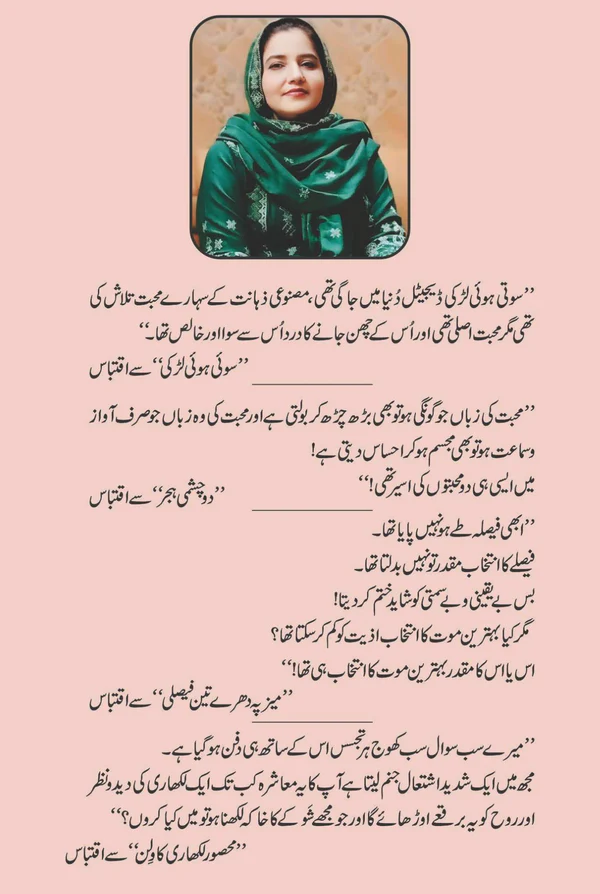 ’’سوتی ہوئی لڑکی ڈیجیٹل دُنیا میں جاگی تھی، مصنوعی ذہانت کے سہارے محبت تلاش کی
تھی مگر محبت اصلی تھی اور اُس کے چھن جانے کا درد اُس سے سوا اور خالص تھا۔‘‘
’’سوئی ہوئی لڑکی‘‘ سے اقتباس
’’محبت کی زباں جو گونگی ہو تو بھی بڑھ چڑھ کر بولتی ہے اور محبت کی وہ زباں جو صرف آواز
و سماعت ہو تو بھی مجسم ہو کر احساس دیتی ہے!
میں ایسی ہی دو محبتوں کی اسیر تھی!‘‘
’’دو چشمی ہجر‘‘ سے اقتباس
’’ابھی فیصلہ طے ہو نہیں پایا تھا۔
فیصلے کا انتخاب مقدر تو نہیں بدلتا تھا۔
بس بے یقینی و بے سمتی کو شاید ختم کر دیتا!
مگر کیا بہترین موت کا انتخاب اذیت کو کم کر سکتا تھا؟
اس یا اس کا مقدر بہترین موت کا انتخاب ہی تھا!‘‘
’’میز پہ دھرے تین فیصلی‘‘ سے اقتباس
’’میرے سب سوال سب کھوج ہر تجسس اس کے ساتھ ہی دفن ہو گیا ہے۔
مجھ میں ایک شدید اشتعال جنم لیتا ہے آپ کا یہ معاشرہ کب تک ایک لکھاری کی دید و نظر
اور روح کو یہ برقعے اوڑھائے گا اور جو مجھے شو کے کا خاکہ لکھنا ہو تو میں کیا کروں؟‘‘
’’محصور لکھاری کا وِلن‘‘ سے اقتباس